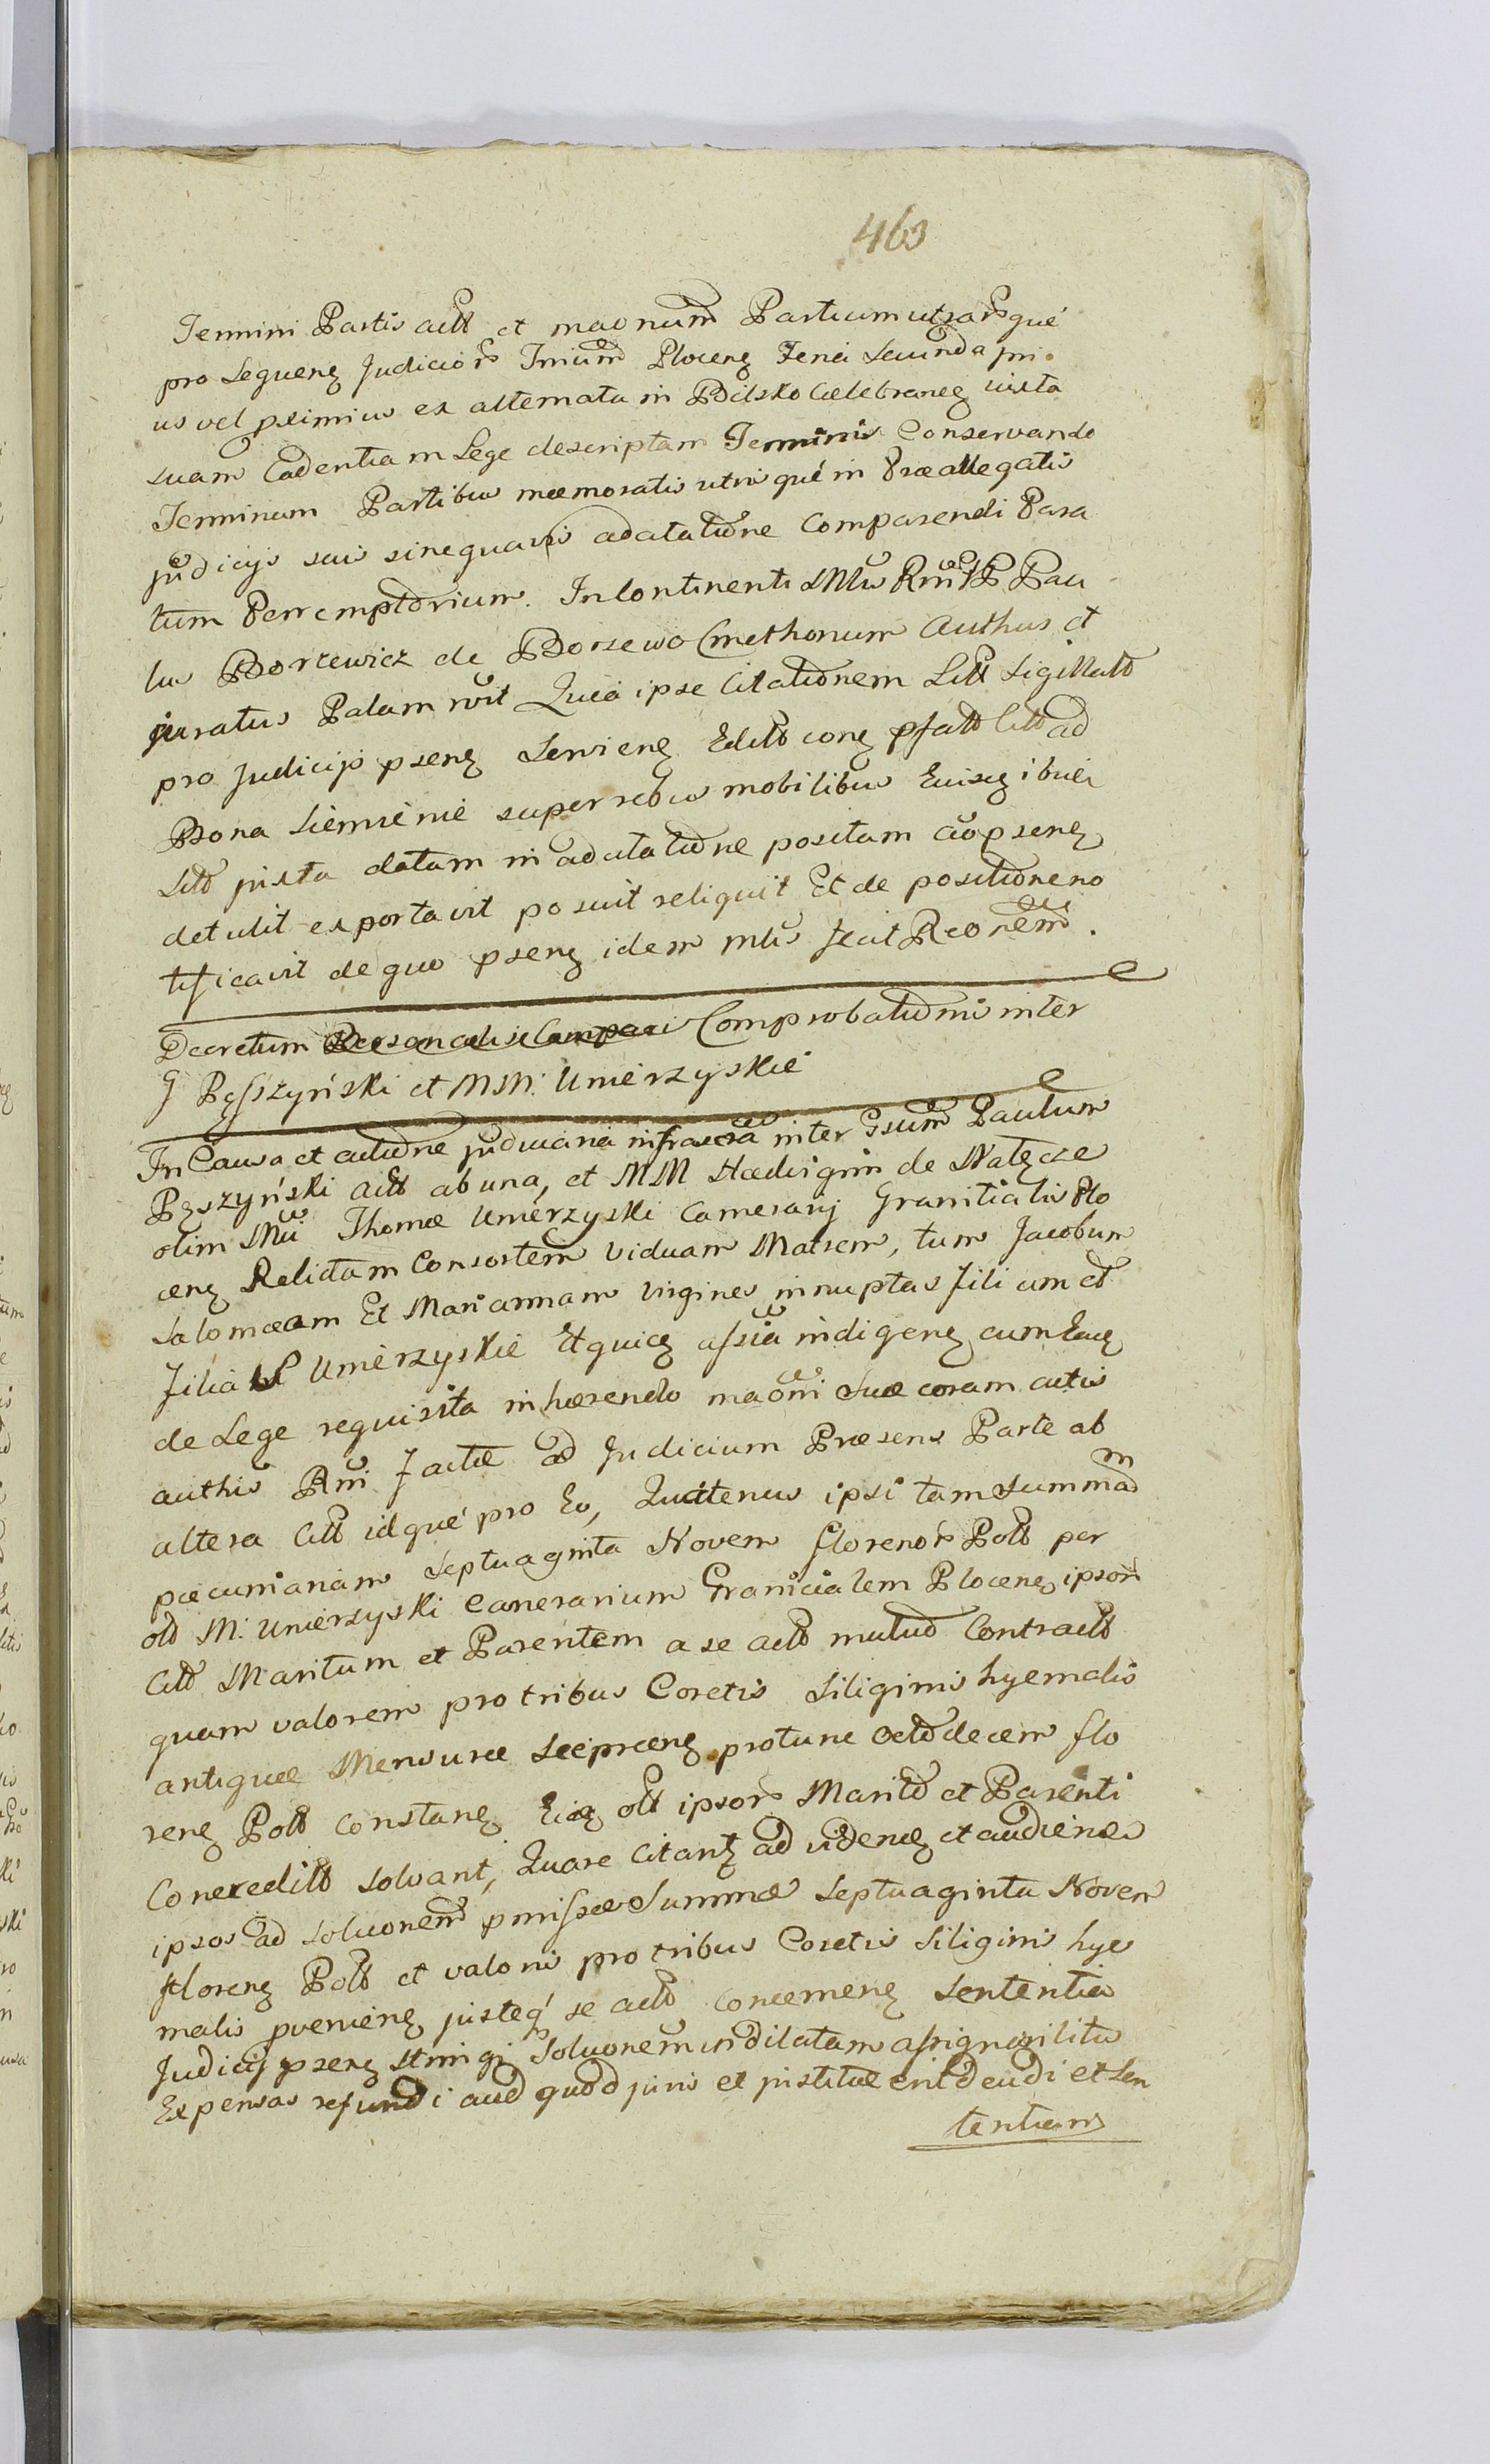 463
Termini Partis actt et maonum Partium utrarqué
pro sequenς Judicior Trium Plocenς Feria Secunda pri
us vel proximius ex alternata in Bielsko Celebranς iuxta
suam Cadentiam Lege descriptam Terminis Conservando
Terminum Partibus memoratis utrisqué in Præallegatis
judicijs suis sinequavis adcitatione Comparendi Para
tum Perremptorium. Incontinenti Mlis Rmi Pau
lus Borzewicz de Borzewo Cmethonum Authus et
juratus Palam rvit Quia ipse Citationem Litt Sigillatt
pro Judicijs psenς Servienς Editt conς pfatt Citt ad
Bona Siemienie super rebus mobilibus
Citt juxta datam in adcitatione positam psenς
detulit exportavit posuit reliquit Et de positione no
tificavit de quo psenς idem Mlis fecit Reonem.
Decretum Comprobationis inter
G Pęszyński et MM: Umierzyskie
In Causa et actione judiciaria infrascra inter Gsum Paulum
Pęszyński Actt ab una, et MM Hedvigim de Nałęcze
olim Mli Thomæ Umierzyski Camerarij Granitialis Plo
cenς Relictam Consortem Viduam Matrem, tum Jacobum
Salomæam Et Mariannam Virgines innuptas Filium et
Filias Umierzyskie assia indigenς cum
de Lege requisita inhærendo maoni suæ coram actis
authis Rmi Factæ ad Judicium Præsens Parte ab
altera Citt idqué pro Eo, Quatenus ipsi tam Summam
pæcuniariam Septuaginta Novem florenor Poltt per
olt M: Umierzyski Camerarium Granicialem Plocenς ipsor
Citt Maritum et Parentem a se actt mutuo Contractt
quam valorem pro tribus Coretis Siliginis hyemalis
antiquæ Mensuræ protunc Octodecem flo
renς Poltt Constanς olt ipsor Marito et Parenti
Concreditt solvant, Quare Citantς ad videnς et audienς
ipsos ad soluonem pmissæ Summæ Septuaginta Novem
florenς Poltt et valoris pro tribus Coretis Siliginis hye
malis pvenienς justeq́ se actt concernenς Sententia
Judicij psenς stringi Soluonem indilatam assignari litis
Expensas refundi aud quod juris et justitiæ erit decidi et Sen
tentiam